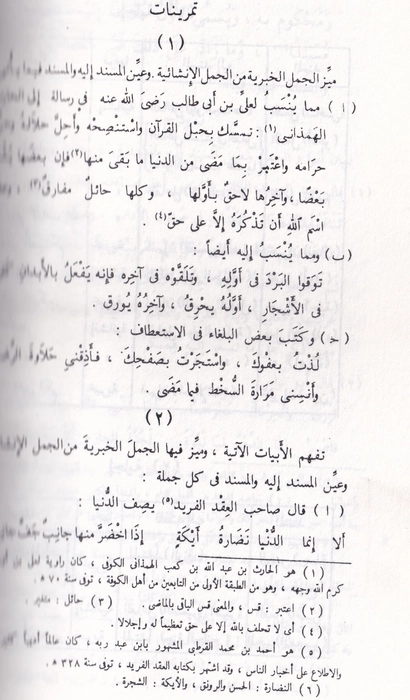 تمرينات
(١)
ميِّز الجمل الخبرية من الجمل الإنشائية . وعيِّن المسند إليه والمسند فيها
(ا) مما يُنْسَبُ لعلىّ بن أبى طالب رَضىَ الله عنه فى رسالة إلى
الهَمذانى (١) : تمسَّك بِحَبْل القرآن واسْتَنْصِحْه وأَحِلَّ حَلالَهُ
حرَامه واعْتَبِرْ بِمَا مَضَى من الدنيا ما بَقىَ منها(٢)فإن بعضَها
بَعْضًا ، وآخِرُها لاحقٌ بأَوَّلها ، وكلها حائلٌ مفارقٌ(٣) ،
اسْمَ اللهِ أن تَذْكُرَهُ إلاَّ على حقّ(٤) .
(ب) ومما يُنْسَبُ إليه أيضاً :
تَوَقوا البَرْدَ فى أَوَّلِهِ ، وتَلَقَّوْه فى آخره فإنه يَفْعَلُ بالأَبدان
فى الأَشْجار ، أَوَّلُهُ يحرِقُ ، وآخرُهُ يُورق .
(حـ) وكتَبَ بعض البلغاء فى الاستعطاف :
لُذْتُ بعفوِكَ ، واسْتَجَرْتُ بصَفْحِكَ ، فأَذِقْنِي حَلاوَةَ
وأَنْسِنى مَرَارَةَ السُّخط فيما مَضَى .
(٢)
تفهم الأبيات الآتية ، وميِّز فيها الجملَ الخبريةَ من الجمل
وعيِّن المسند إليه والمسند فى كل جملة :
(ا) قال صاحب العِقد الفريد(٥) يصِف الدُّنيا :
ألا إنما الدُّنيا نَضَارةُ أَيْكَةٍ إذا اخْضَرَّ منها جانِبٌ جَفَّ
(١) هو الحارث بن عبد الله بن كعب الهمذانى الكوفى ، كان راوية لعلى بن
كرم الله وجهه ، وهو من الطبقة الأولى من التابعين من أهل الكوفة ، توفى سنة ٧٠ ه .
(٢) اعتبر : قس ، والمعنى قس الباقى بالماضى . (٣) حائل : متغير .
(٤) أى لا تحلف بالله إلا على حق تعظيماً له وإجلالا .
(٥) هو أحمد بن محمد القرطبى المشهور بابن عبد ربه ، كان عالماً أديباً
والاطلاع على أخبار الناس ، وقد اشتهر بكتابه العقد الفريد ، توفى سنة ٣٢٨ ه .
(٦) النضارة : الحسن والرونق ، والأيكة : الشجرة .